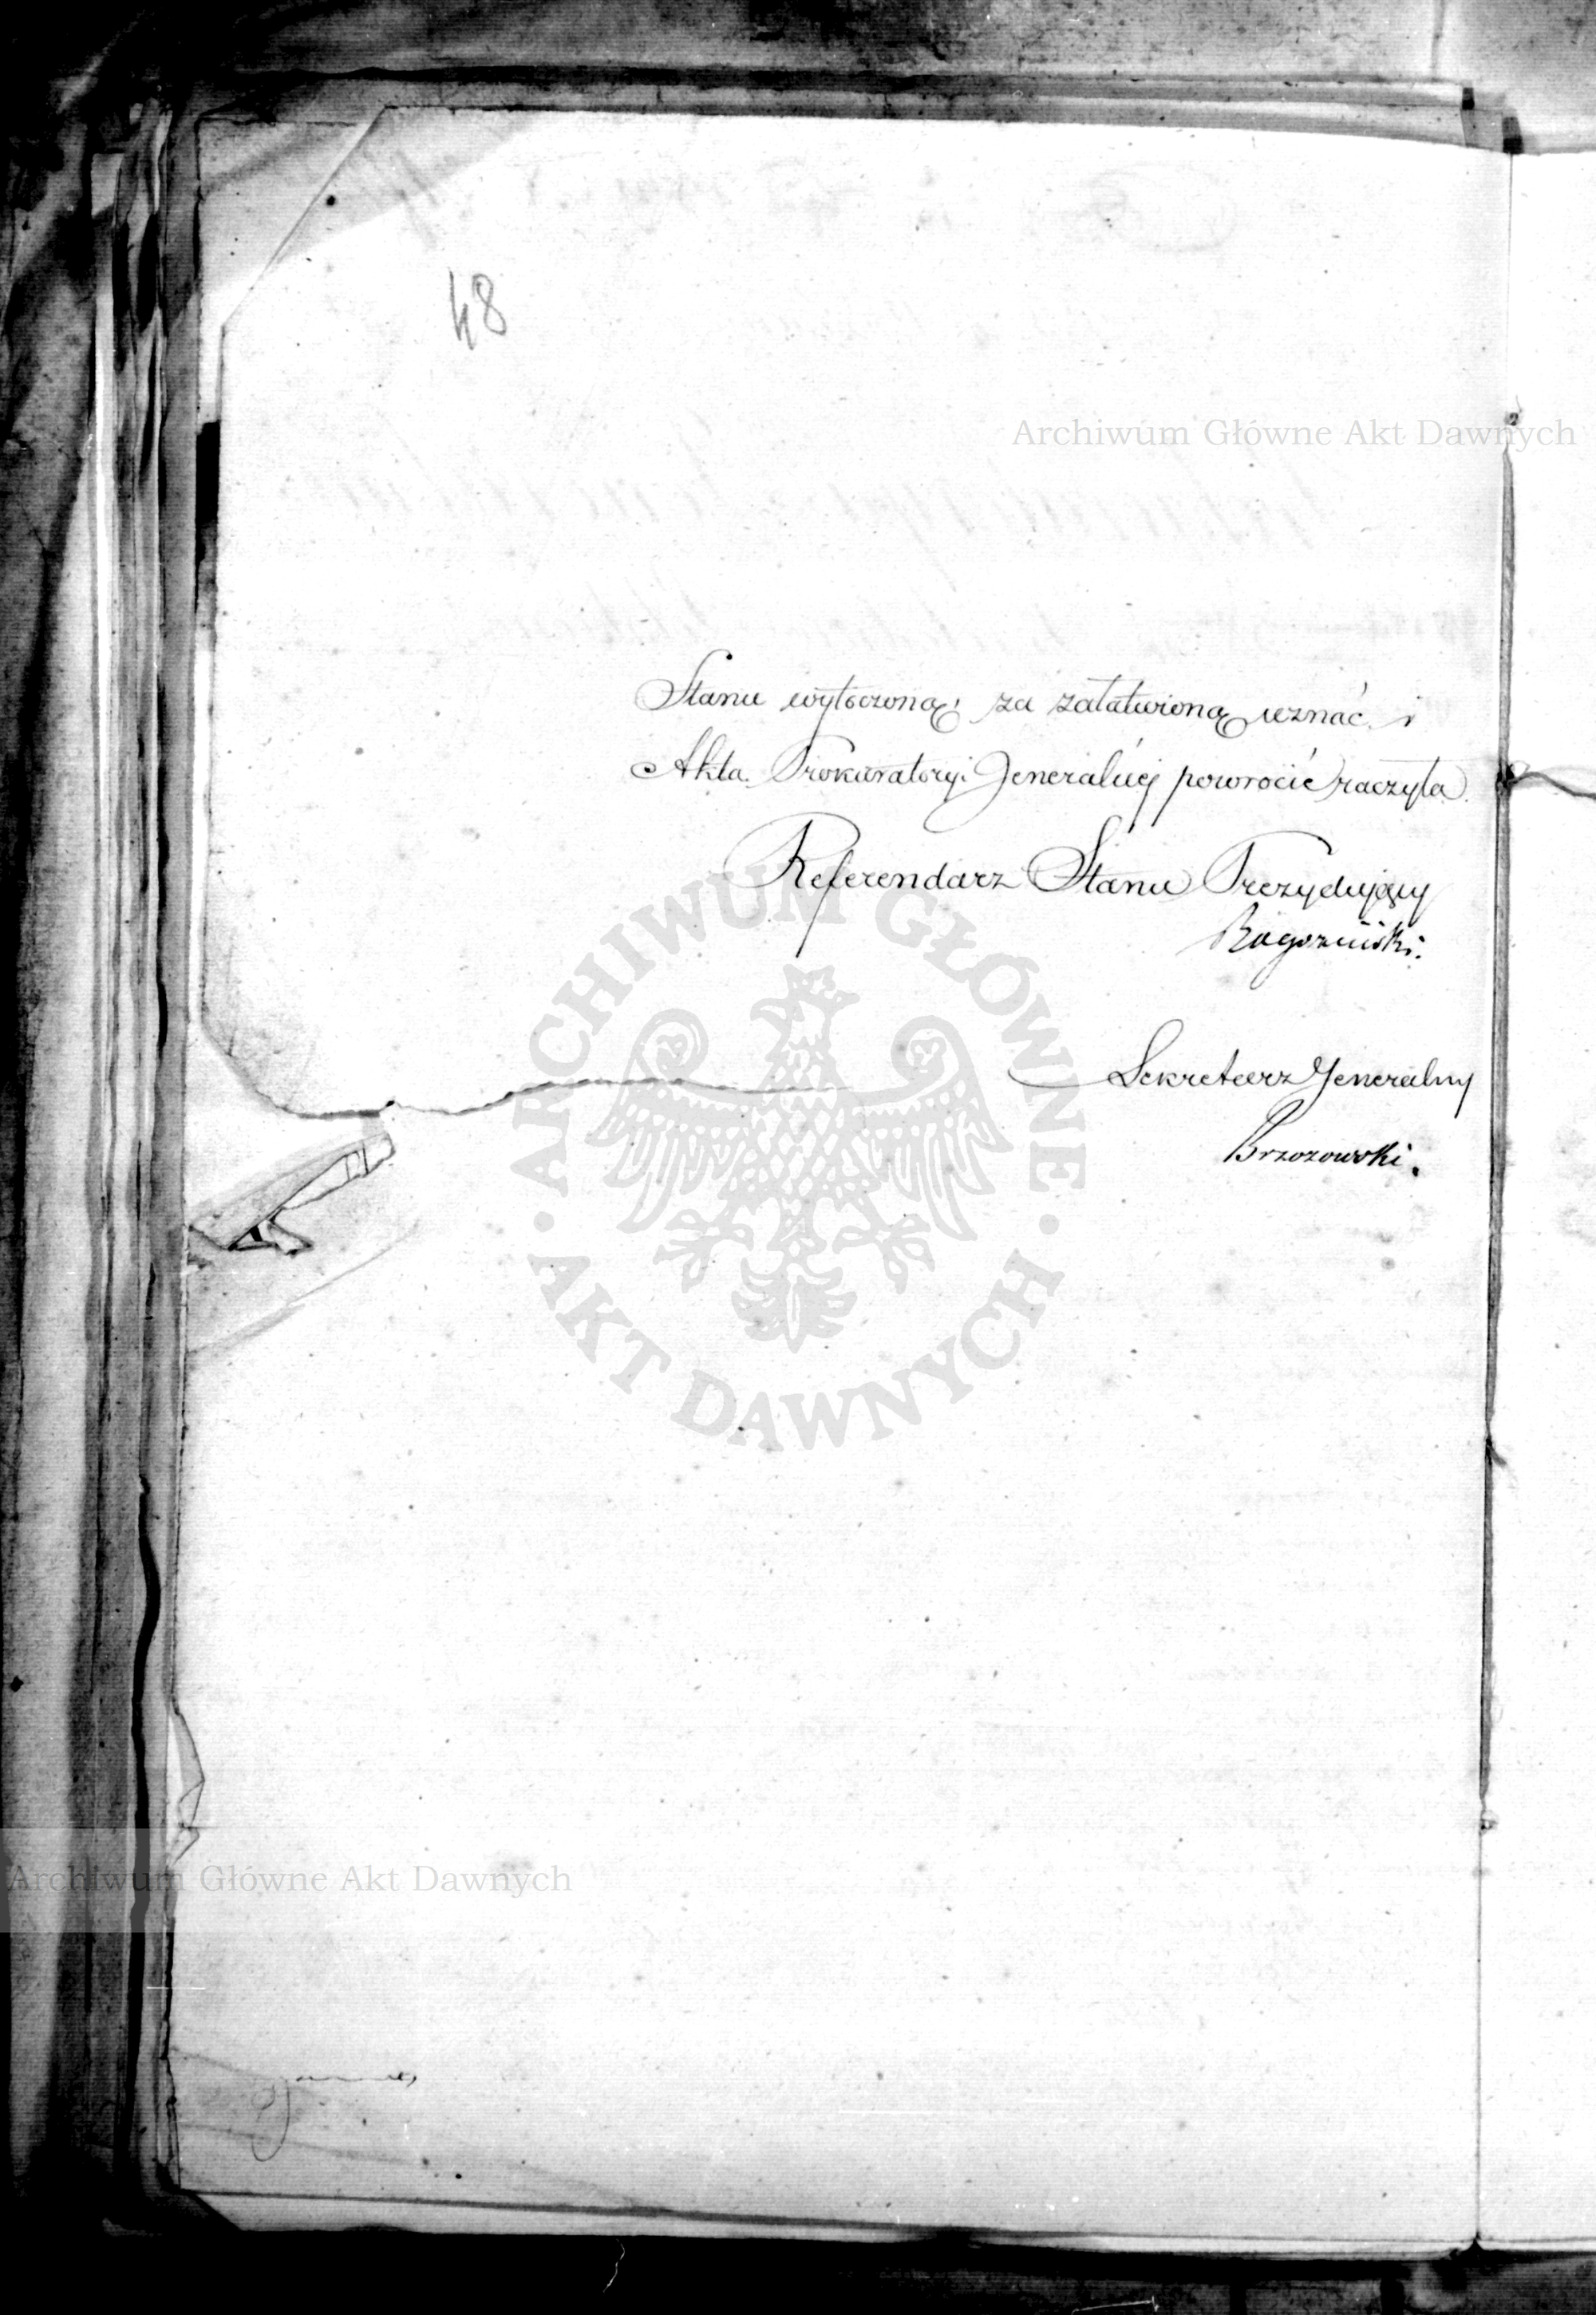 48
Archiwum Główne Akt Dawnych
Stanu wytoczoną, za załatwioną uznać i
Akta Prokuratoryi Jeneralnéj powrócić raczyła.
Referendarz Stanu Prezydujący
Sekretarz Jeneralny
Brzozowski.
ARCHIWUM GŁÓWNE
AKT DAWNYCH
Archiwum Główne Akt Dawnych